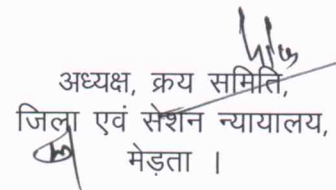 अध्यक्ष, क्रय समिति,
जिला एवं सेशन न्यायालय,
मेड़ता ।